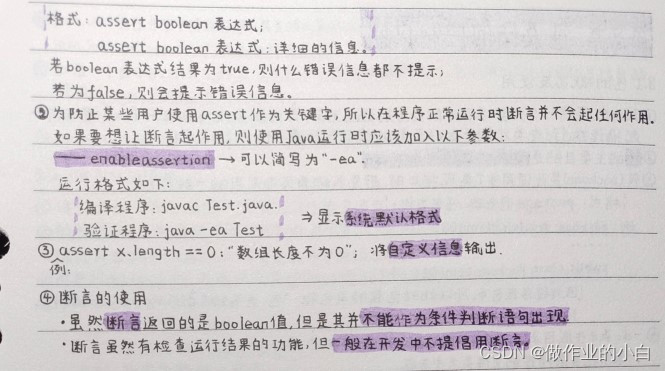 格式: assert boolean 表达式;
assert boolean 表达式: 详细的信息.
若boolean 表达式结果为true, 则什么错误信息都不提示;
若为false, 则会提示错误信息。
②为防止某些用户使用assert作为关键字,所以在程序正常运行时断言并不会起任何作用.
如果要想让断言起作用, 则使用Java运行时应该加入以下参数:
—— enableassertion → 可以简写为"-ea".
运行格式如下:
编译程序: javac Test.java.
验证程序: java -ea Test ⇒ 显示系统默认格式
③ assert x.length == 0: "数组长度不为0"; 将自定义信息输出.
例:
④ 断言的使用
·虽然断言返回的是boolean值,但是其并不能作为条件判断语句出现.
·断言虽然有检查运行结果的功能,但一般在开发中不提倡用断言。
CSDN @做作业的小白